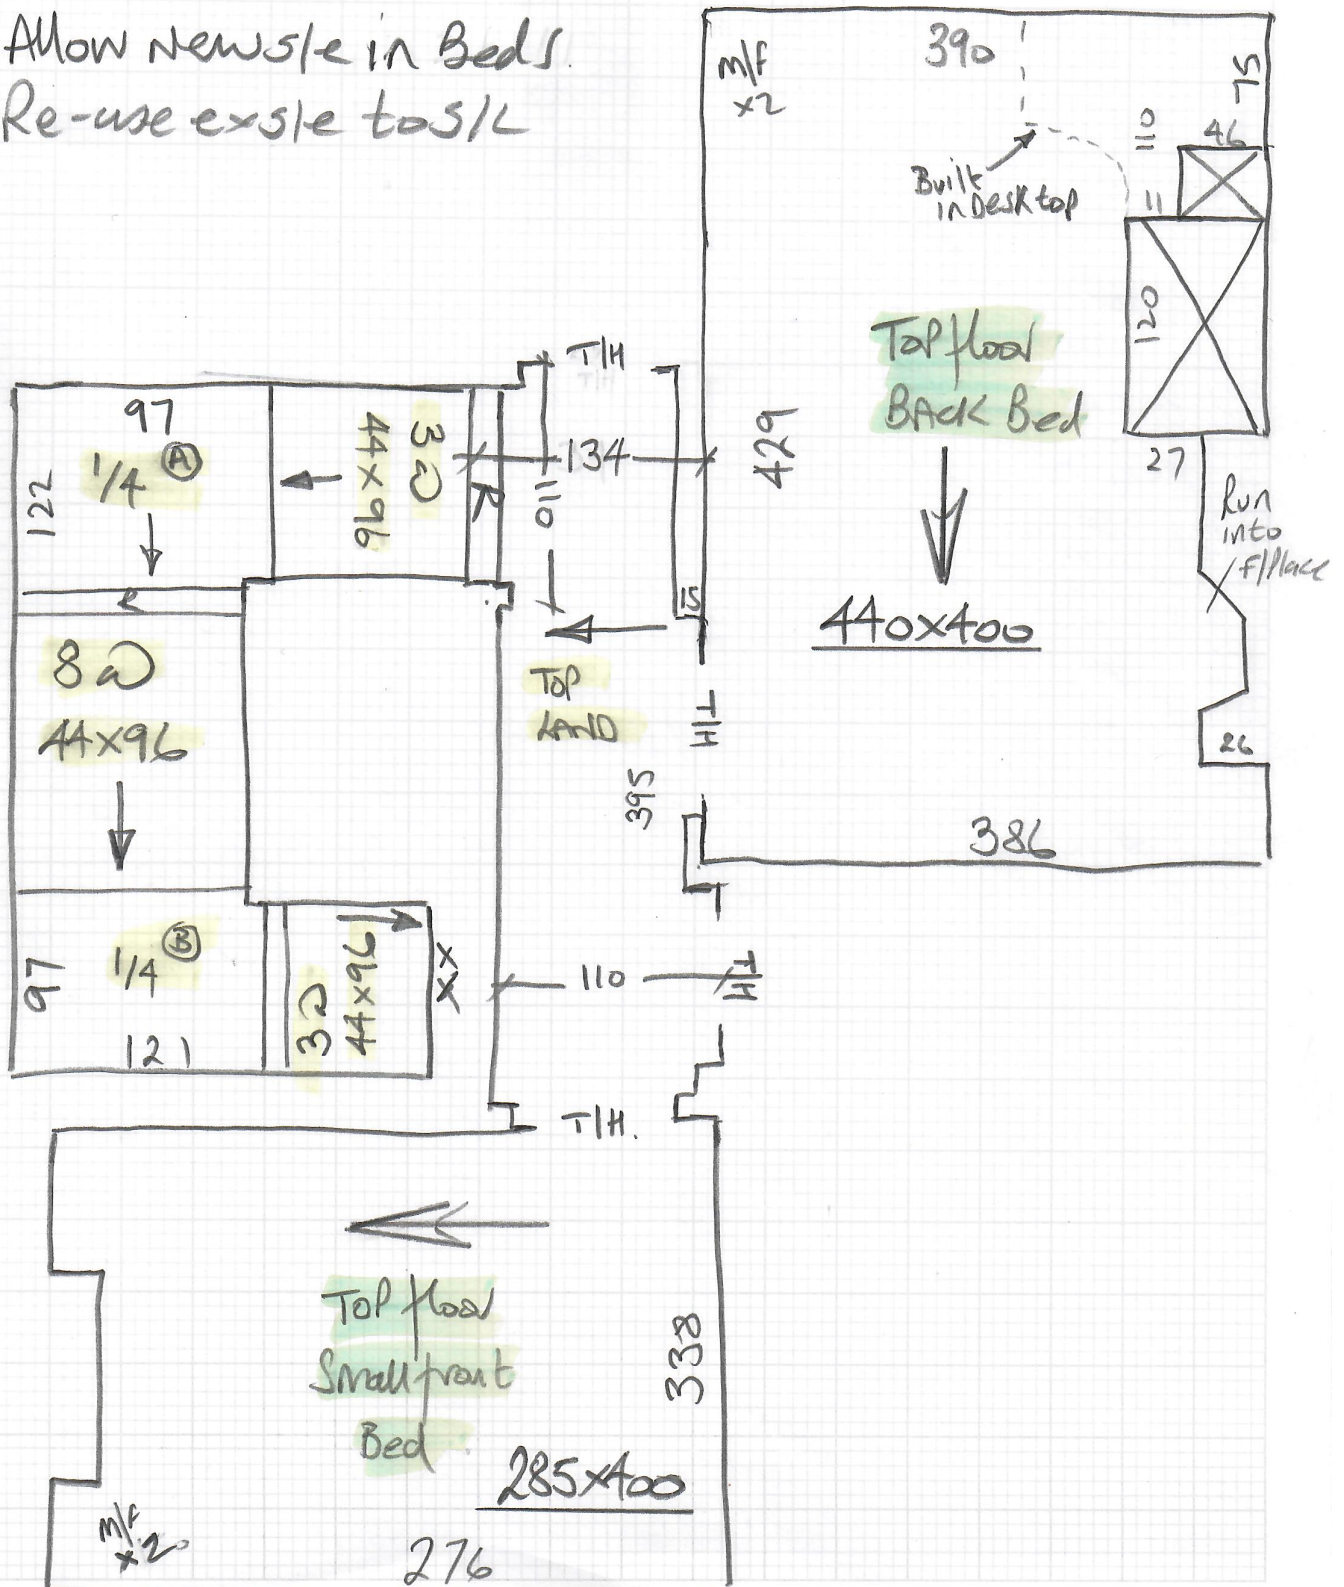 Allow New s/e in Beds.
Re-use ex s/e to S/L
390
M/F
x2
75
110
46
Built
in Desktop
11
120
Top floor
BACK Bed
429
27
Run
into
F/Place
440x400
26
386
T/H
97
1/4 A
122
3
44x96
R
134
110
15
R
8
44x96
TOP
LAND
T/H
395
1/4 B
97
121
3
44x96
XX
110
T/H
T/H.
Top floor
Small front
Bed
338
285x400
M/F
x2
276